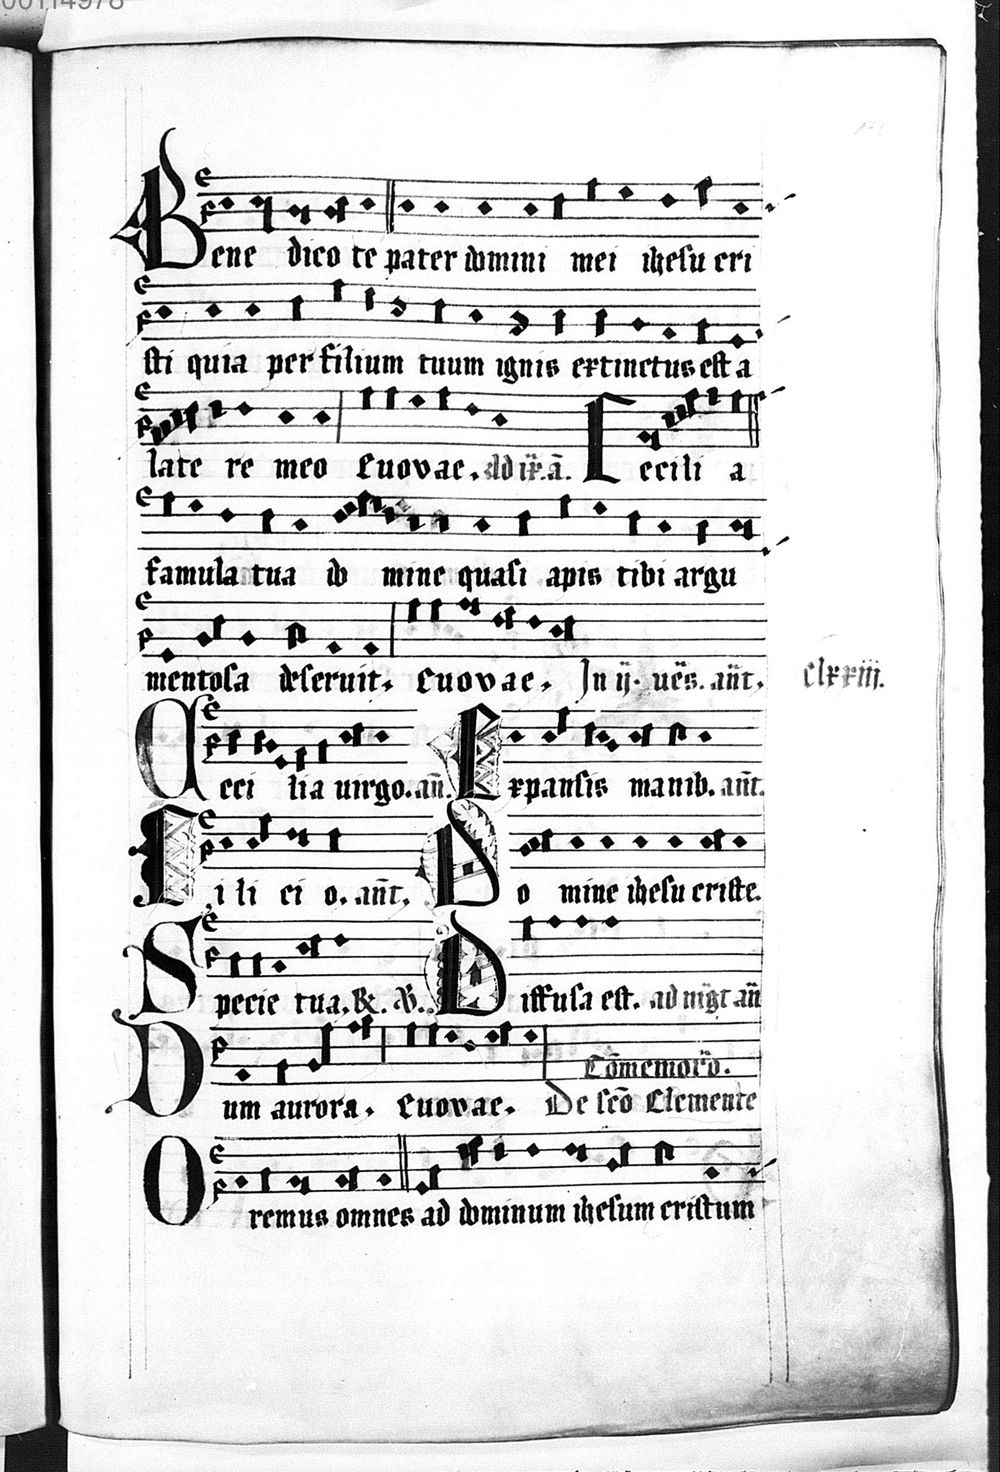 00114978
Bene dico te pater domini mei ihesu cri
sti quia per filium tuum ignis extinctus est a
late re meo Euovae. Cecili a
famula tua do mine quasi apis tibi argu
mentosa deseruit. Euovae. In ij. ves. ant.
Clxxiii.
Ceci lia uirgo. an. Expansis manib. ant.
Tili ci o. ant. Do mine ihesu criste.
Specie tua. &. Diffusa est. ad mgt an
Comemoro.
Dum aurora. Euovae. De sco Clemente
Oremus omnes ad dominum ihesum cristum